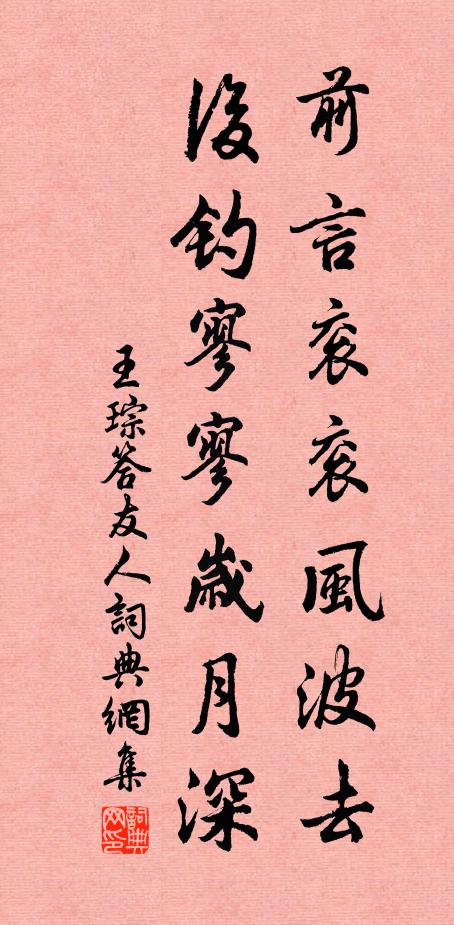 前言衮衮風波去
後鈞寥寥歲月深
王琮答友人詞典網集
詞典网印